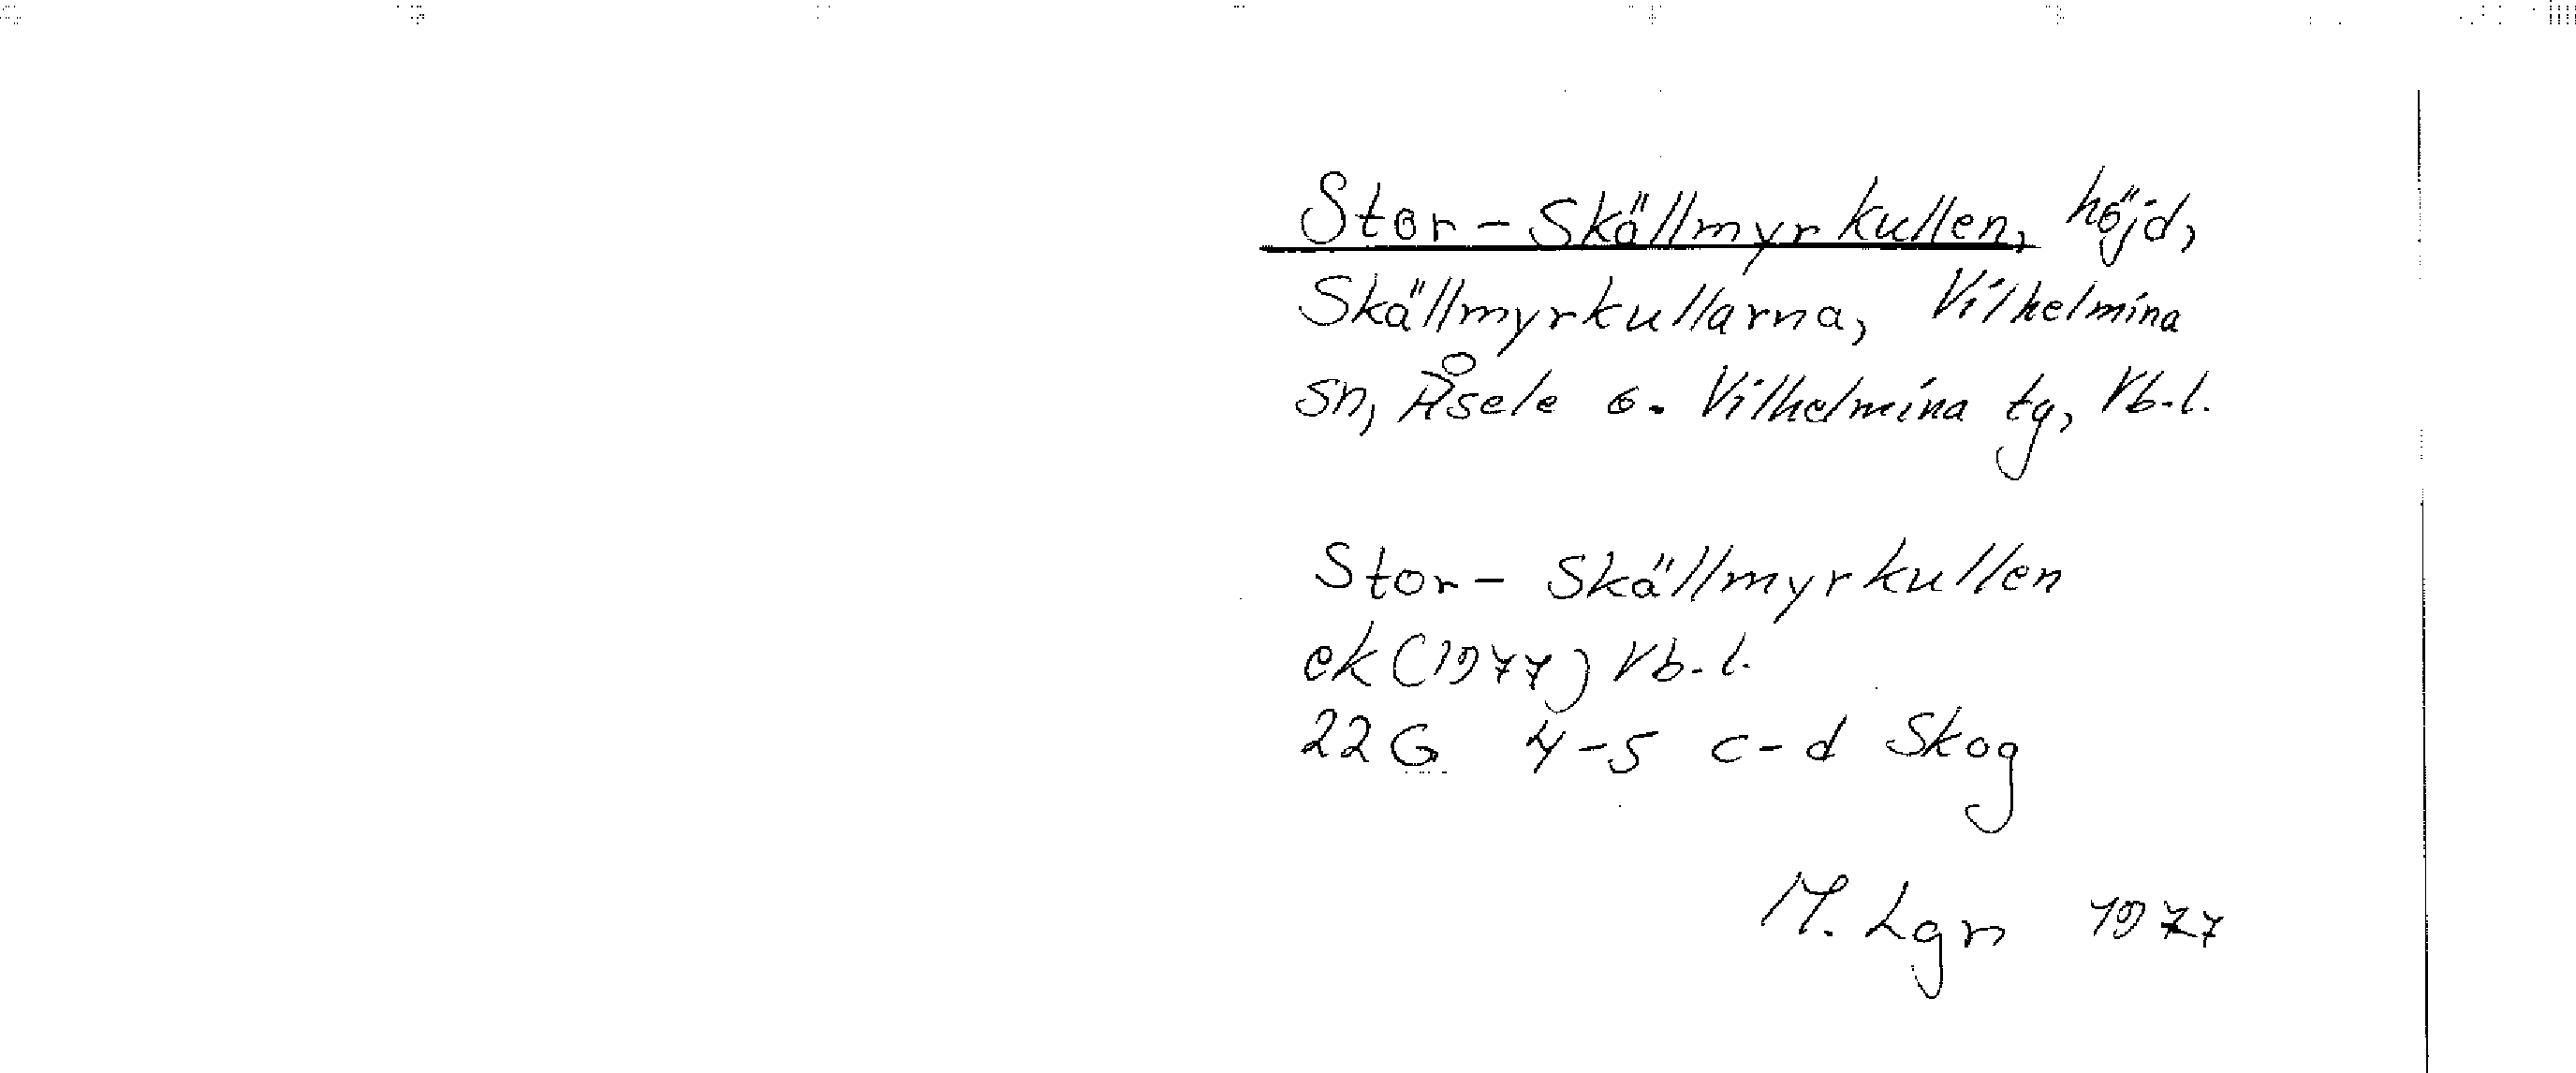 Stor-Skällmyrkullen, höjd,
Skällmyrkullarna, Vilhelmina
sn, Åsele o. Vilhelmina tg, Vb.l.
Stor-Skällmyrkullen
ek (1977) Vb.l.
22G 4-5 c-d Skog
M. Lgn 1977